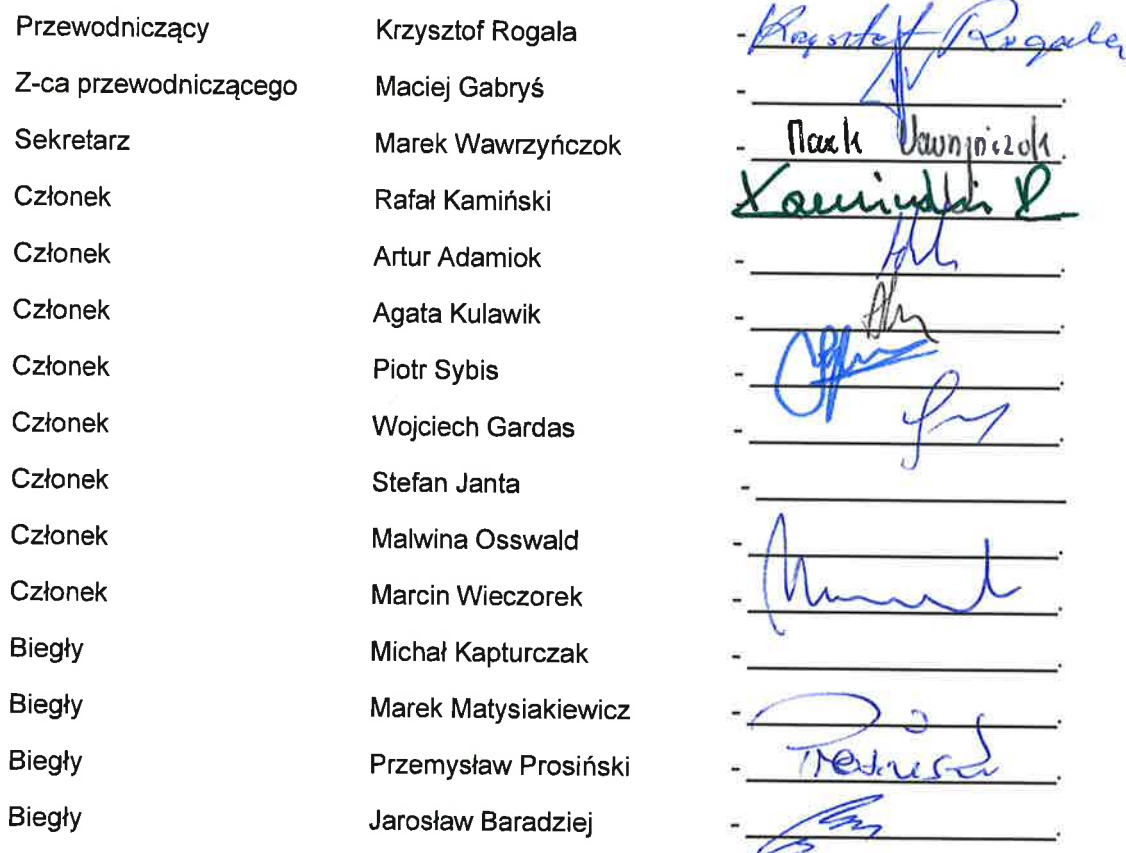 Przewodniczący Krzysztof Rogala - Krzysztof Rogala
Z-ca przewodniczącego Maciej Gabryś - .
Sekretarz Marek Wawrzyńczok - Marek Wawrzyńczok.
Członek Rafał Kamiński Kamiński R
Członek Artur Adamiok - .
Członek Agata Kulawik - .
Członek Piotr Sybis - .
Członek Wojciech Gardas - .
Członek Stefan Janta -
Członek Malwina Osswald - .
Członek Marcin Wieczorek - .
Biegły Michał Kapturczak - .
Biegły Marek Matysiakiewicz - .
Biegły Przemysław Prosiński - .
Biegły Jarosław Baradziej - .